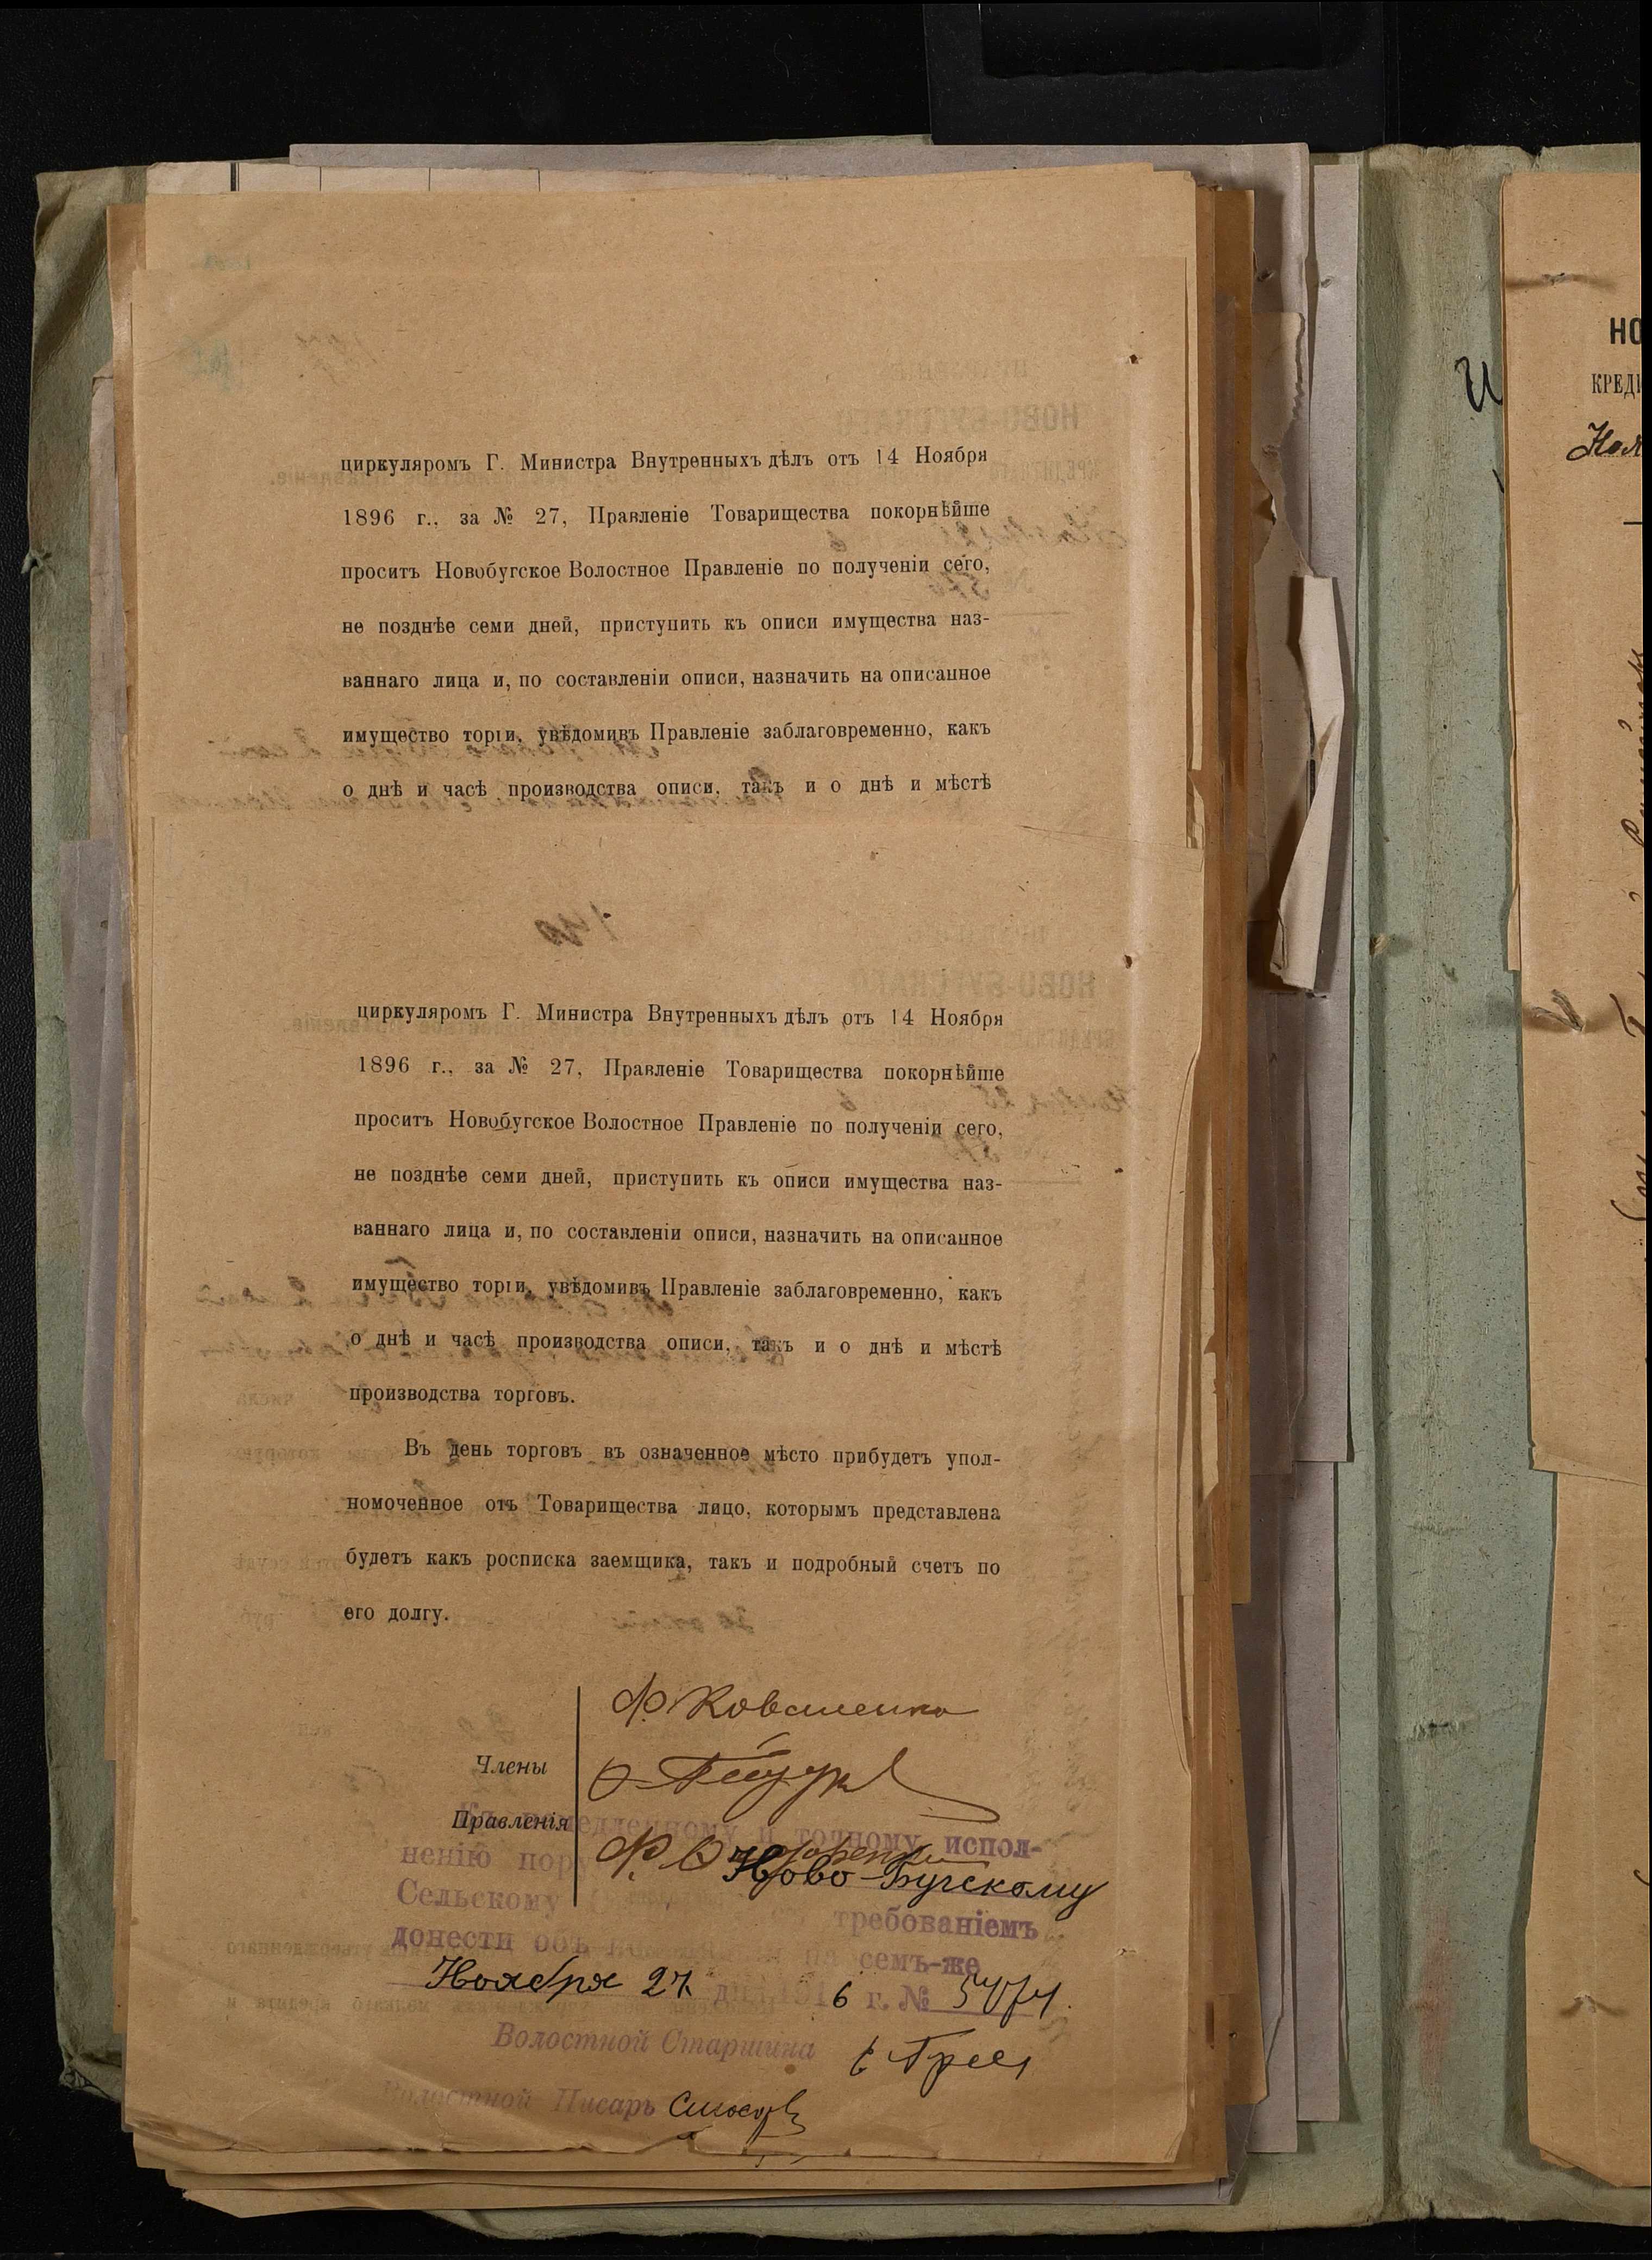 циркуляромъ Г. Министра Внутренныхъ дѣлъ отъ 14 Ноября
1896 г., за № 27, Правленіе Товарищества покорнѣйше
проситъ Новобугское Волостное Правленіе по полученіи сего,
не позднѣе семи дней, приступить къ описи имущества наз-
ваннаго лица и, по составленіи описи, назначить на описанное
имущество торги, увѣдомивъ Правленіе заблаговременно, какъ
о днѣ и часѣ производства описи, такъ и о днѣ и мѣстѣ
циркуляромъ Г. Министра Внутренныхъ дѣлъ отъ 14 Ноября
1896 г., за № 27, Правленіе Товарищества покорнѣйше
проситъ Новобугское Волостное Правленіе по полученіи сего,
не позднѣе семи дней, приступить къ описи имущества наз-
ваннаго лица и, по составленіи описи, назначить на описанное
имущество торги, увѣдомивъ Правленіе заблаговременно, какъ
о днѣ и часѣ производства описи, такъ и о днѣ и мѣстѣ
производства торговъ.
Въ день торговъ въ означенное мѣсто прибудетъ упол-
номоченное отъ Товарищества лицо, которымъ представлена
будетъ какъ росписка заемщика, такъ и подробный счетъ по
его долгу.
Ф. Коваленко
Члены
Правленія
точному испол-
ненію
Ново-Бугскому
Сельскому требованіемъ
донести объ на семъ-же
Ноября 27 дня 1916 г. № 5074.
Волостной Старшина
Волостной Писарь
НО
КРЕДИ
Ноя